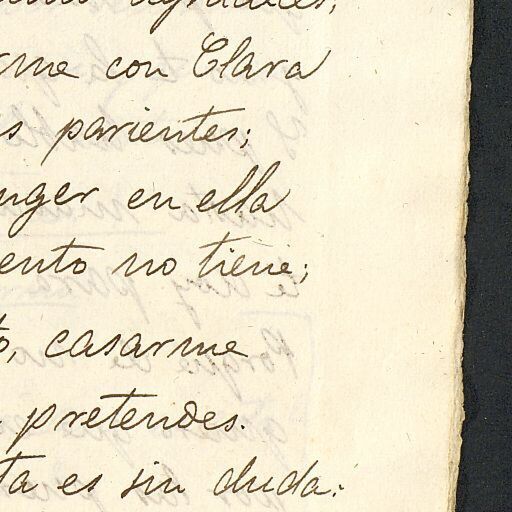 rme con Clara
s parientes;
uger en ella
ento no tiene;
o, casarme
pretendes.
ta es sin duda: